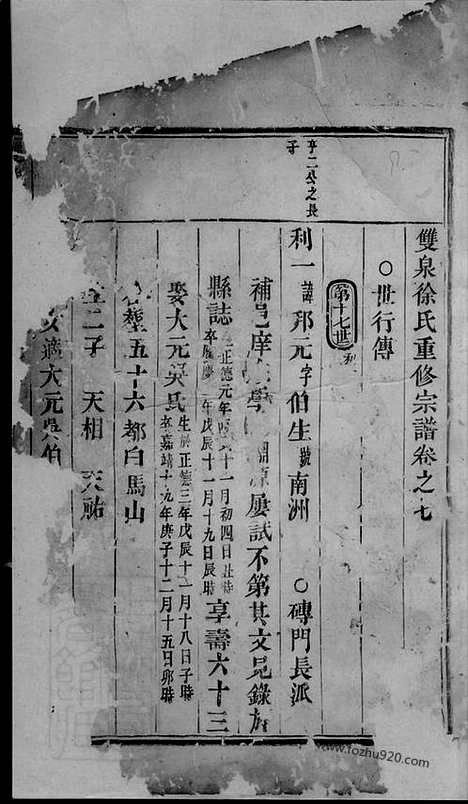 雙泉徐氏重修宗譜卷之七
○世行傳
第十七世 利
亨二公之長
子
利一 諱邦元字伯生號南洲 ○磚門長派
補邑庠 學 淵源屢試不第其文見錄於
縣誌 生正德元年 十一月初四日丑時
卒 慶 年戊辰十一月十九日辰時 享壽六十三
娶大元吳氏 生於正德三年戊辰十一月十八日子時
卒嘉靖十九年庚子十二月十五日卯時
塟五十六都白馬山
二子 天相 天祐
女適大元吳伯
www.fozhu920.com